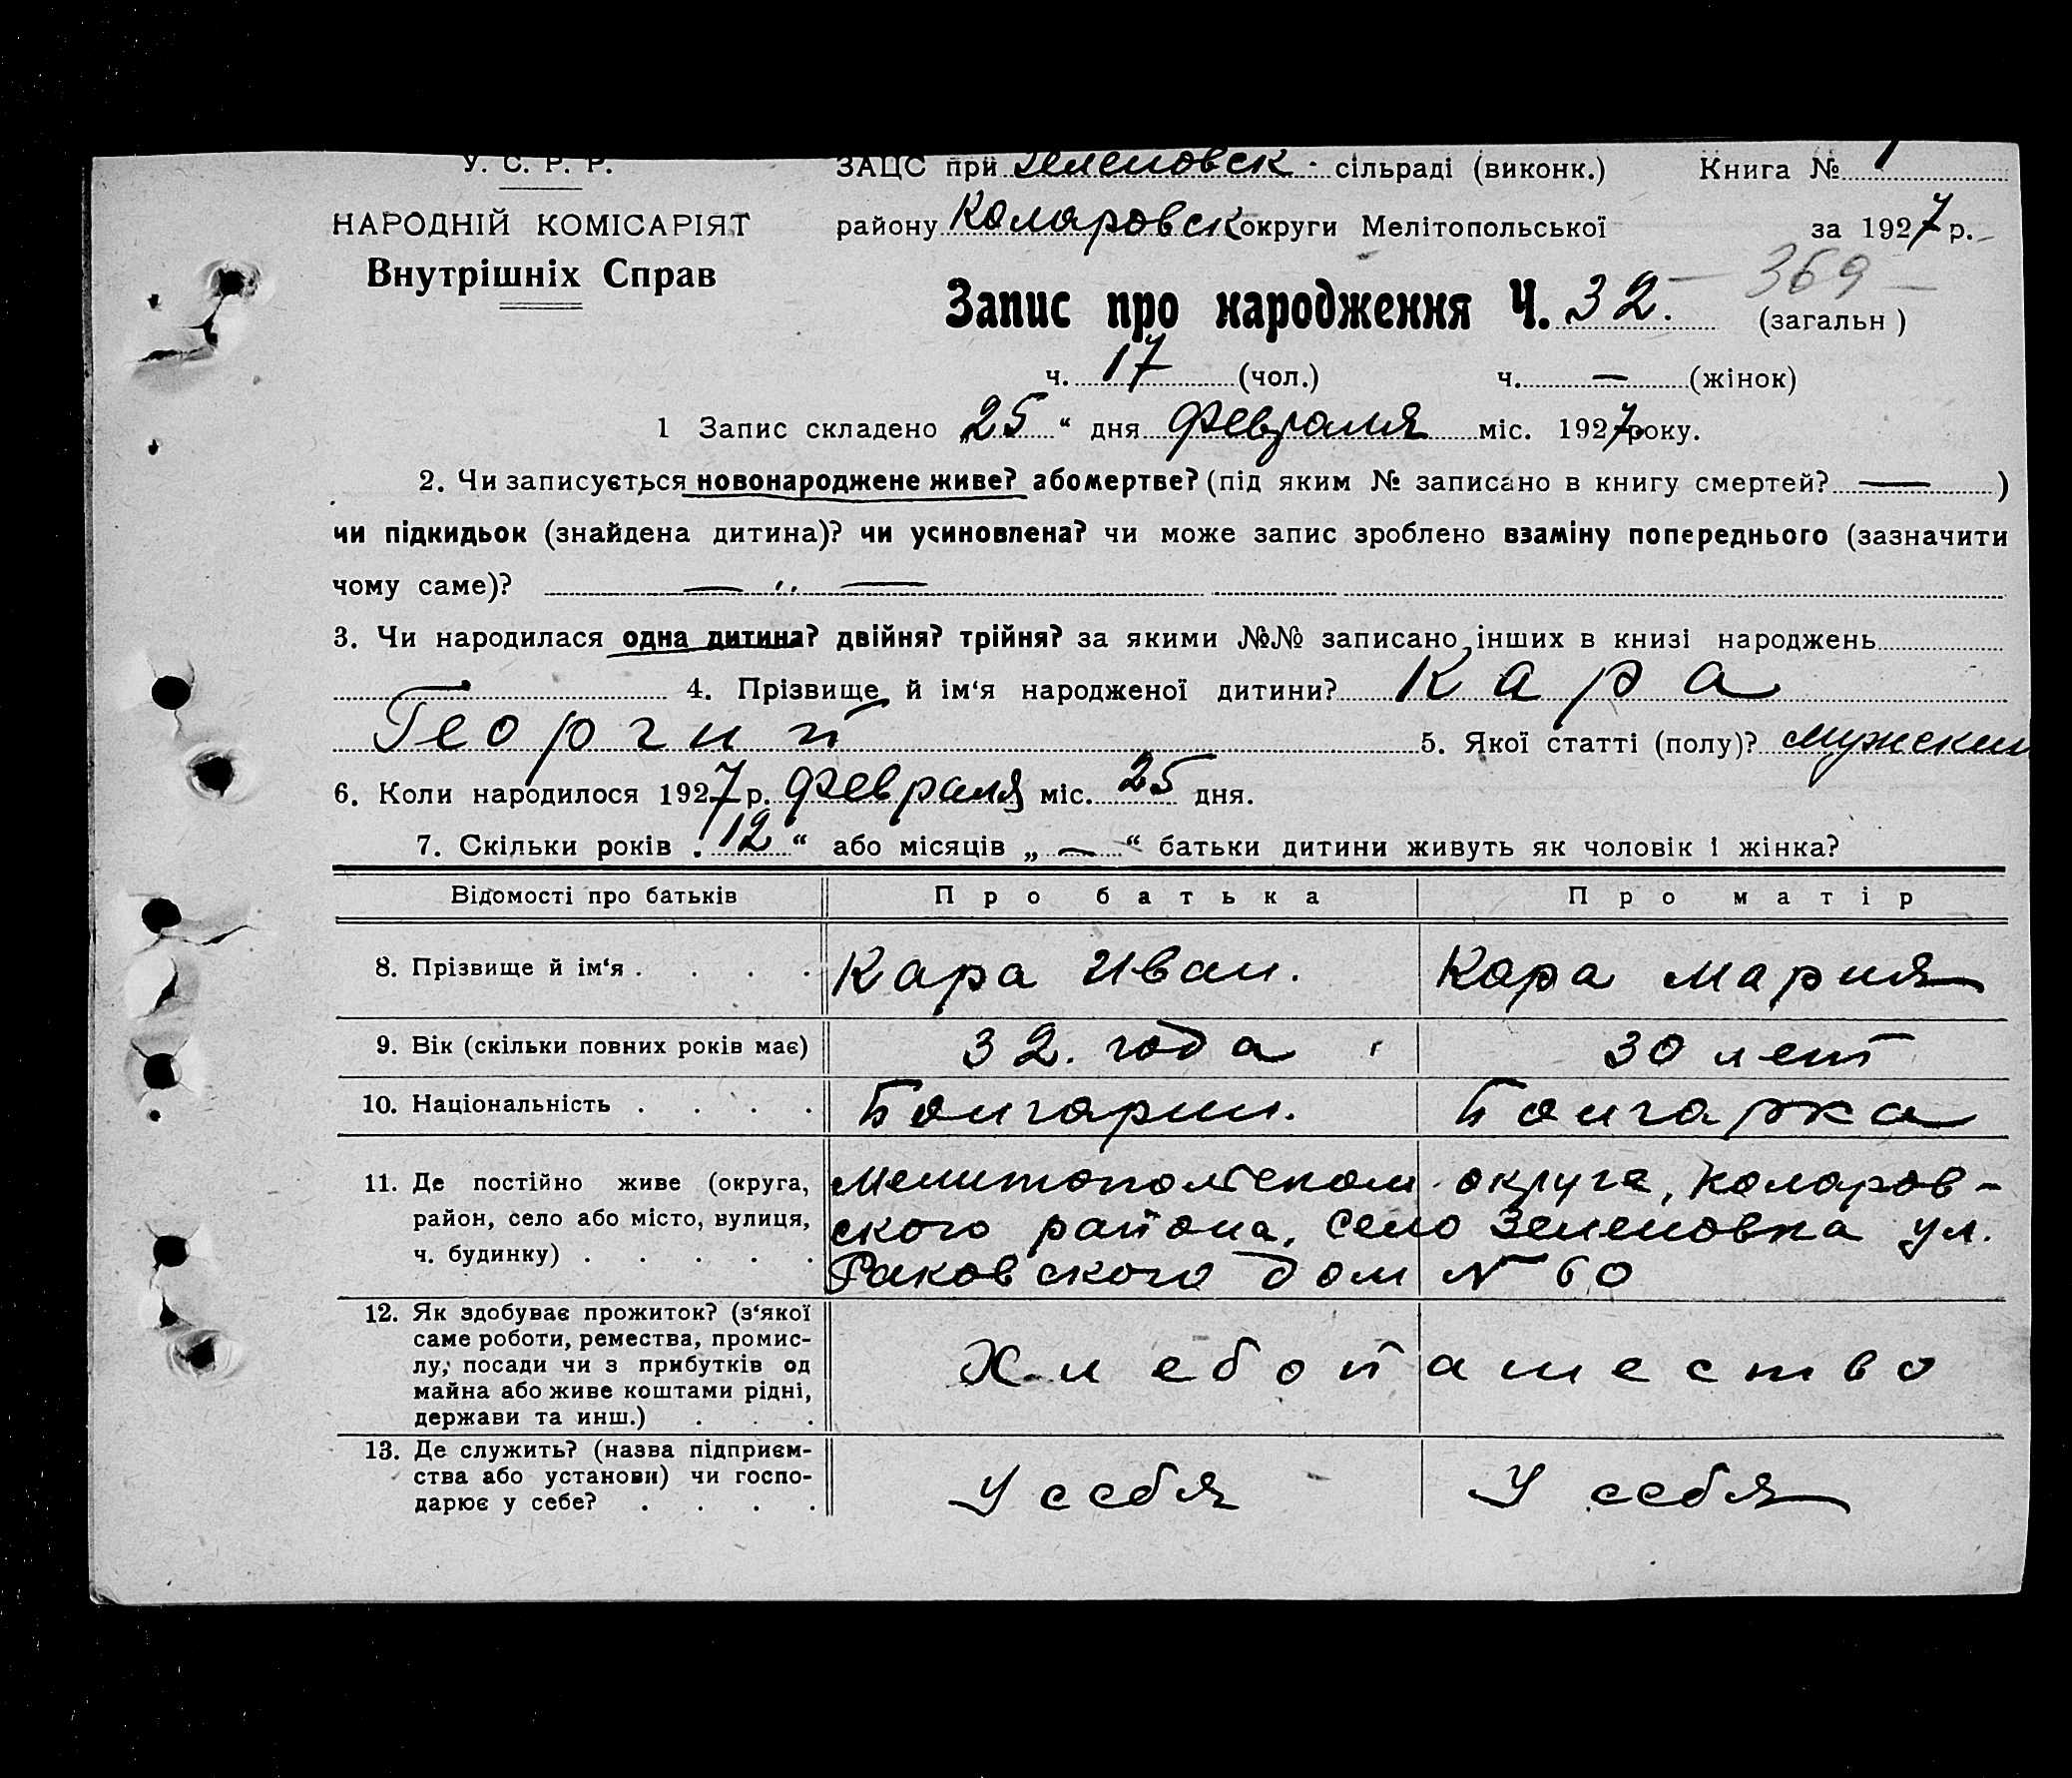 У. С. Р. Р.
ЗАЦС при Зеленовск - сільраді (виконк.) Книга № 1
НАРОДНІЙ КОМІСАРІЯТ
району Коларовск округи Мелітопольської за 1927 р.
Внутрішніх Справ
Запис про народження Ч. 32. 369 (загальн )
ч. 17 (чол.) ч. — (жінок)
1 Запис складено „25“ дня февраля міс. 1927 року.
2. Чи записується новонароджене живе? або мертве? (під яким № записано в книгу смертей? — )
чи підкидьок (знайдена дитина)? чи усиновлена? чи може запис зроблено взаміну попереднього (зазначити
чому саме)? — „ —
3. Чи народилася одна дитина? двійня? трійня? за якими №№ записано інших в книзі народжень
— 4. Прізвище й ім‘я народженої дитини? Кара
Георгий 5. Якої статті (полу)? мужский
6. Коли народилося 1927 р. февраля міс. 25 дня.
7. Скільки років „12“ або місяців „—“ батьки дитини живуть як чоловік і жінка?
Відомості про батьків Про батька Про матір
8. Прізвище й ім‘я . . . . Кара Иван. Кара Мария
9. Вік (скільки повних років має) 32. года 30 лет
10. Національність . . . . Болгарин. Болгарка
11. Де постійно живе (округа,
район, село або місто, вулиця,
ч. будинку) . . . . .
Мелитопольском округе, Коларов-
ского района, село Зеленовка ул.
Раковского дом № 60
12. Як здобуває прожиток? (з‘якої
саме роботи, ремества, промис-
лу, посади чи з прибутків од
майна або живе коштами рідні,
держави та инш.) . . .
Хлебопашество
13. Де служить? (назва підприєм-
ства або установи) чи госпо-
дарює у себе? . . . .
У себя У себя